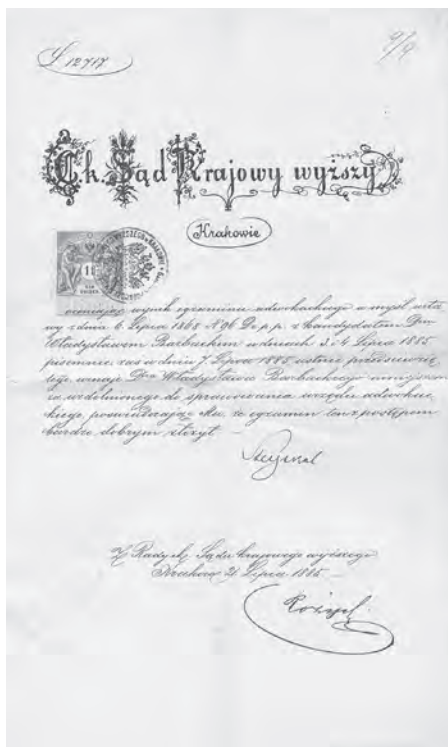 L 12717
C. k. Sąd Krajowy wyższy
Krakowie
oceniając wynik egzaminu adwokackiego w myśl usta
wy z dnia 6 Lipca 1868 N 96 Dz. p. p. z kandydatem Drem
Władysławem Barbackim w dniach 3 i 4 Lipca 1885
pisemnie, zaś w dniu 7 Lipca 1885 ustnie przedsięwzię
tego uznaje Dra Władysława Barbackiego
za uzdolnionego do sprawowania urzędu adwokac
kiego, poświadczając mu, że egzamin ten z postępem
bardzo dobrym złożył —
Z Rady ck. Sądu krajowego wyższego
Kraków 21 Lipca 1885 —